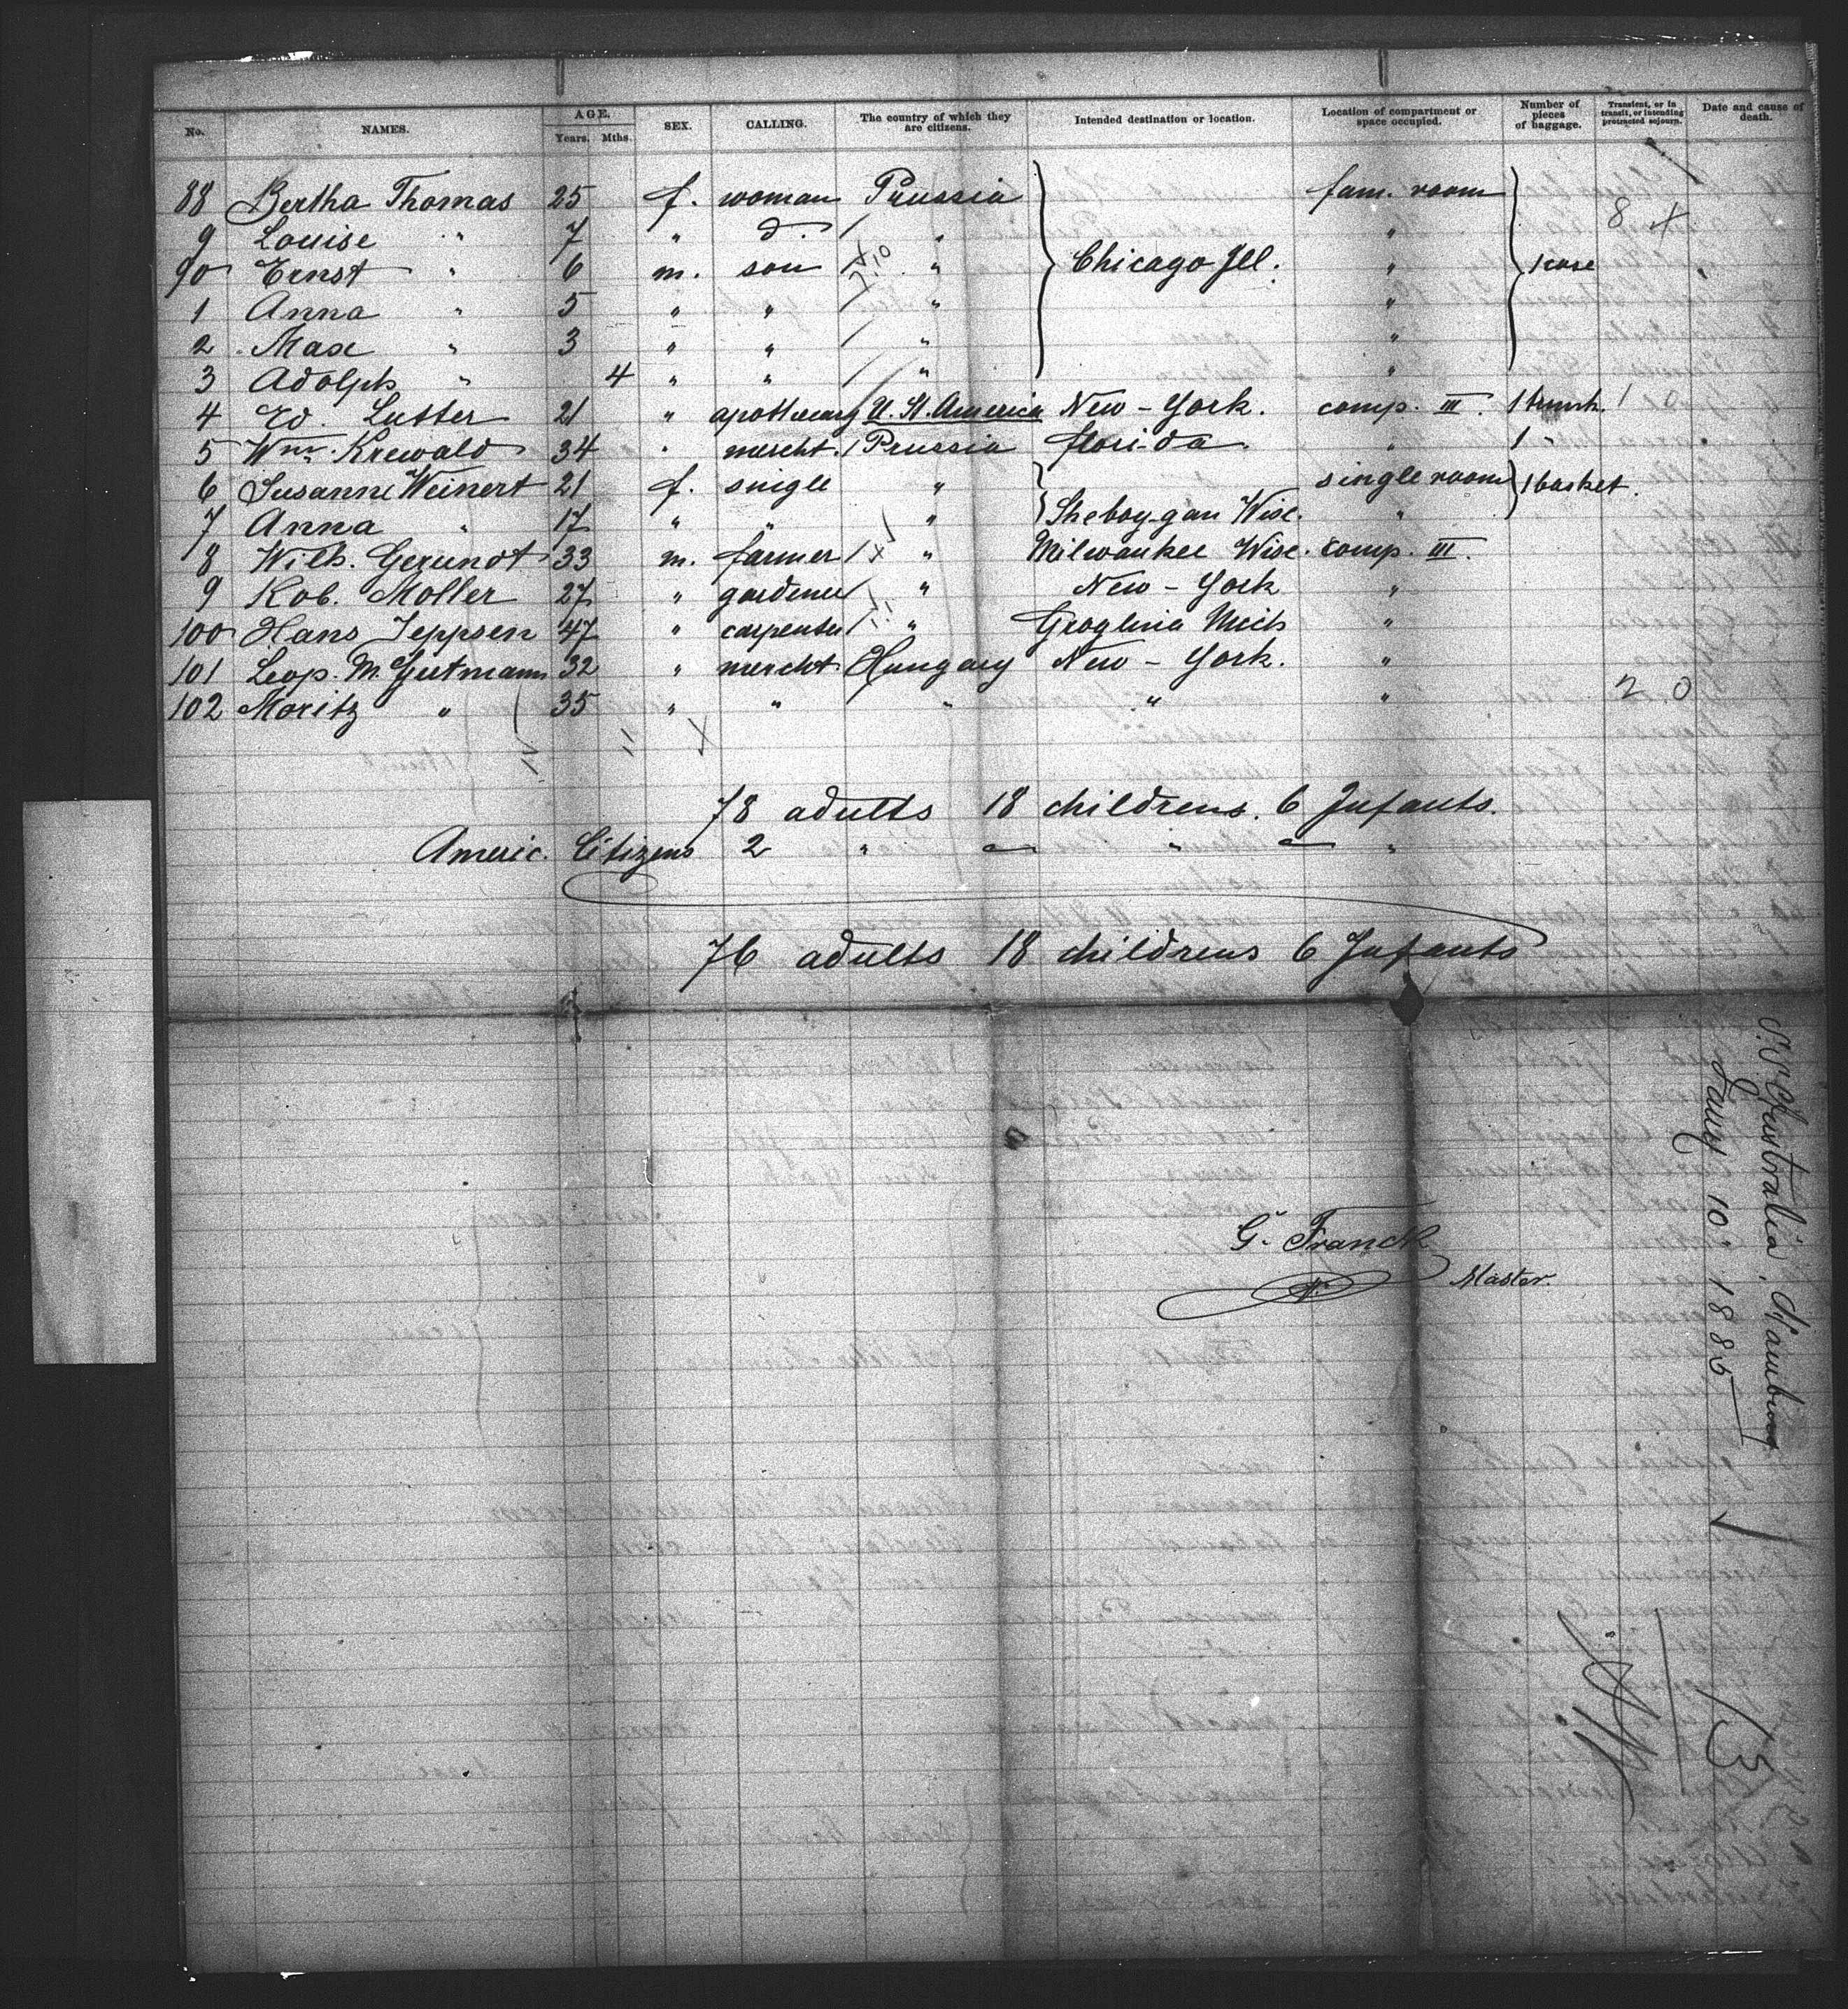 No. NAMES. AGE. Years. Mths. SEX. CALLING. The country of which they are citizens. Intended destination or location. Location of compartment or space occupied. Number of pieces of baggage. Transient, or in transit, or intending protracted sojourn. Date and cause of death.
88 Bertha Thomas 25 f. woman Prussia fam. room
9 Louise " 7 " d. " " 8
90 Ernst " 6 m. son " Chicago Ill. " 1 case
1 Anna " 5 " " " "
2 Max " 3 " " " "
3 Adolph " 4 " " " "
4 Ed. Lutter 21 " apothecary U. St. America New-York. comp. III. 1 trunk.
5 Wm. Krewald 34 " mercht. Prussia Florida. " 1 "
6 Susanne Weinert 21 f. single " single room 1 basket.
7 Anna " 17 " " " Sheboy-gan Wisc. "
8 Wilh. Gerundt 33 m. farmer " Milwaukee Wisc. comp. III.
9 Rob. Moller 27 " gardener " New-York "
100 Hans Jeppsen 47 " carpenter " Mich "
101 Leop. M. Gutmann 32 " mercht. Hungary New-York. "
102 Moritz " 35 " " " " " 2 0
78 adults 18 childrens. 6 Infants.
Americ. Citizens 2 " — " — "
76 adults 18 childrens 6 Infants
G. Franck
Master.
S. S. Australia. Hamburg
Jany 10. 1885